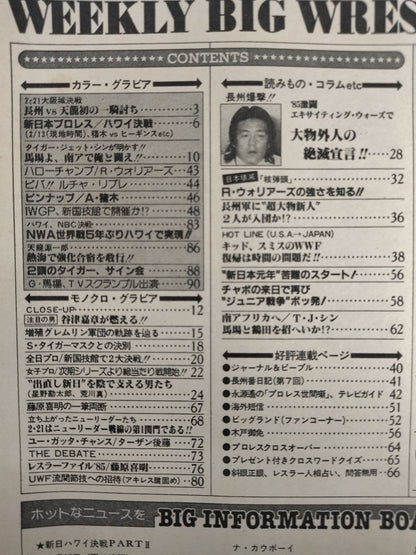 WEEKLY BIG WRES
CONTENTS
カラー・グラビア
2/21大阪城決戦
長州vs天龍初の一騎討ち 3
新日本プロレス/ハワイ決戦 6
(2/13(現地時間)、猪木vsヒーギンスetc)
タイガー・ジェット・シンが明かす!!
馬場よ、南アで俺と闘え!! 10
ハローチャンプ/R・ウォリアーズ 43
ビバ!!ルチャ・リブレ 44
ピンナップ/A・猪木 46
IWGP、新国技館で開催か!? 48
ハワイ、NBC決戦 83
NWA世界戦5年ぶりハワイで実現!!
天龍源一郎 86
熱海で強化合宿を敢行!!
2頭のタイガー、サイン会 88
G・馬場、TVスクランブル出演 90
モノクロ・グラビア
CLOSE-UP 12
注目の男 谷津嘉章が燃える!!
増殖グレムリン軍団の軌跡を辿る 15
S・タイガーマスクとの決別 18
全日プロ/新国技館で2大決戦!! 20
女子プロ/次期シリーズより総当たり戦開始!! 22
"出直し新日"を陰で支える男たち
(星野勘太郎、荒川真) 24
藤原喜明の一筆両断 67
立ち上がったニューリーダーたち 68
2・21はニューリーダー戦線の第1関門である!!
ユー・ガッタ・チャンス/ターザン後藤 72
THE DEBATE 73
レスラーファイル'85/藤原喜明 76
UWF流関節技への招待(アキレス腱固め) 80
読みもの・コラムetc
長州爆撃!!
'85激闘
エキサイティング・ウォーズで
大物外人の
絶滅宣言!! 28
日本壊滅「核弾頭」 32
R・ウォリアーズの強さを知る!!
長州軍に"超大物新人"
2人が入団か!? 36
HOT LINE (U.S.A→JAPAN)
キッド、スミスのWWF
復帰は時間の問題だ!! 38
"新日本元年"苦難のスタート! 56
チャボの来日で再び
"ジュニア戦争"ボッ発! 58
南アフリカへ/T・J・シン
馬場と鶴田を招へいか!? 62
好評連載ページ
●ジャーナル&ピープル 40
●長州番日記(第7回) 41
●永源遙の「プロレス世間噺」、テレビガイド 42
●海外短信 51
●ビッグランド(ファンコーナー) 52
●木戸御免 56
●プロレスクロスオーバー 64
●プレゼント付きクロスワードクイズ 65
●斜眼正眼、レスラー人相占い、問答無用 66
ホットなニュースを BIG INFORMATION BOA
★新日ハワイ決戦PARTⅡ
ナ・カウボーイ